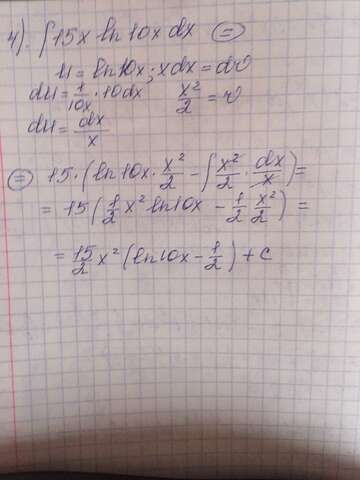 4). ∫15x ln10x dx (=)
u = ln10x ; xdx = dv
du = 1/10x · 10dx   x²/2 = v
du = dx/x
(=) 15·(ln10x · x²/2 - ∫x²/2 · dx/x) =
= 15(1/2 x² ln10x - 1/2 x²/2) =
= 15/2 x² (ln10x - 1/2) + c